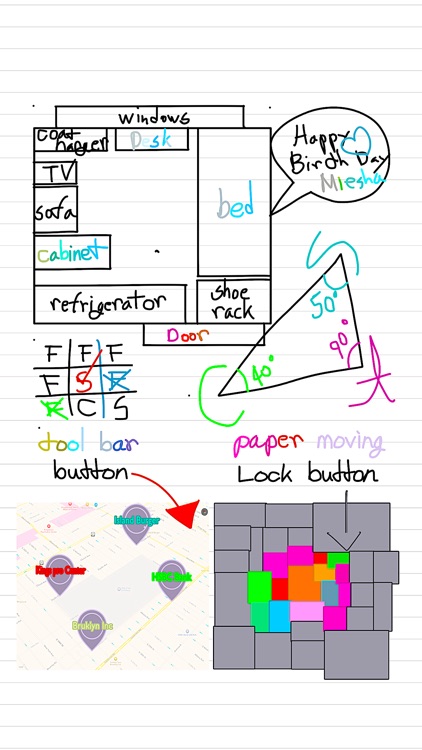 windows
coat hagger
Desk
Happy
Birth Day
Miesha
TV
sofa
bed
cabinet
refrigerator
shoe rack
Door
S
50°
90°
A
40°
C
F F F
F S F
F C S
tool bar button
paper moving Lock button
Island Burger
King pro Center
HSBC Bank
Bruklyn Inn